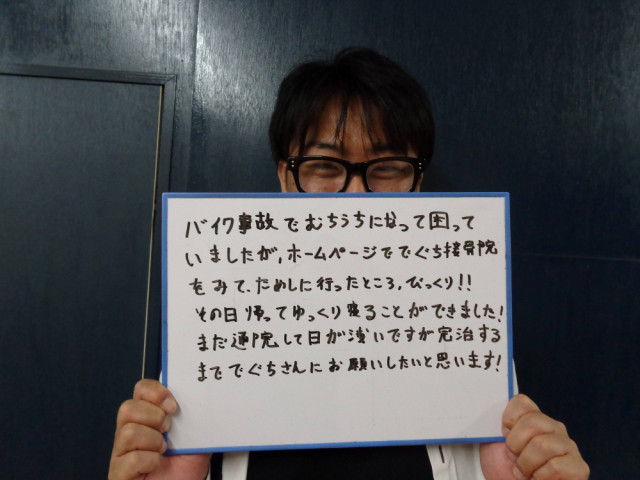 バイク事故でむちうちになって困って
いましたが、ホームページででぐち接骨院
をみて、ためしに行ったところ、びっくり!!
その日帰ってゆっくり寝ることができました!
まだ通院して日が浅いですが完治する
まででぐちさんにお願いしたいと思います!